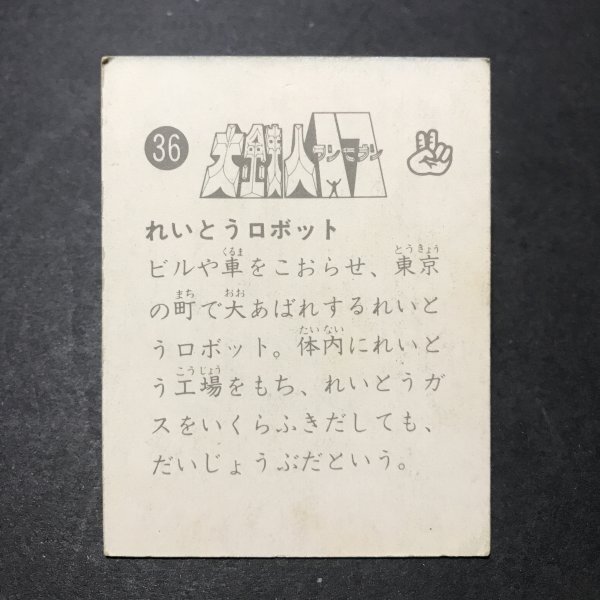 36
大鉄人17
ワンセブン
れいとうロボット
ビルや車をこおらせ、東京
くるま とうきょう
の町で大あばれするれいと
まち おお
うロボット。体内にれいと
たいない
う工場をもち、れいとうガ
こうじょう
スをいくらふきだしても、
だいじょうぶだという。